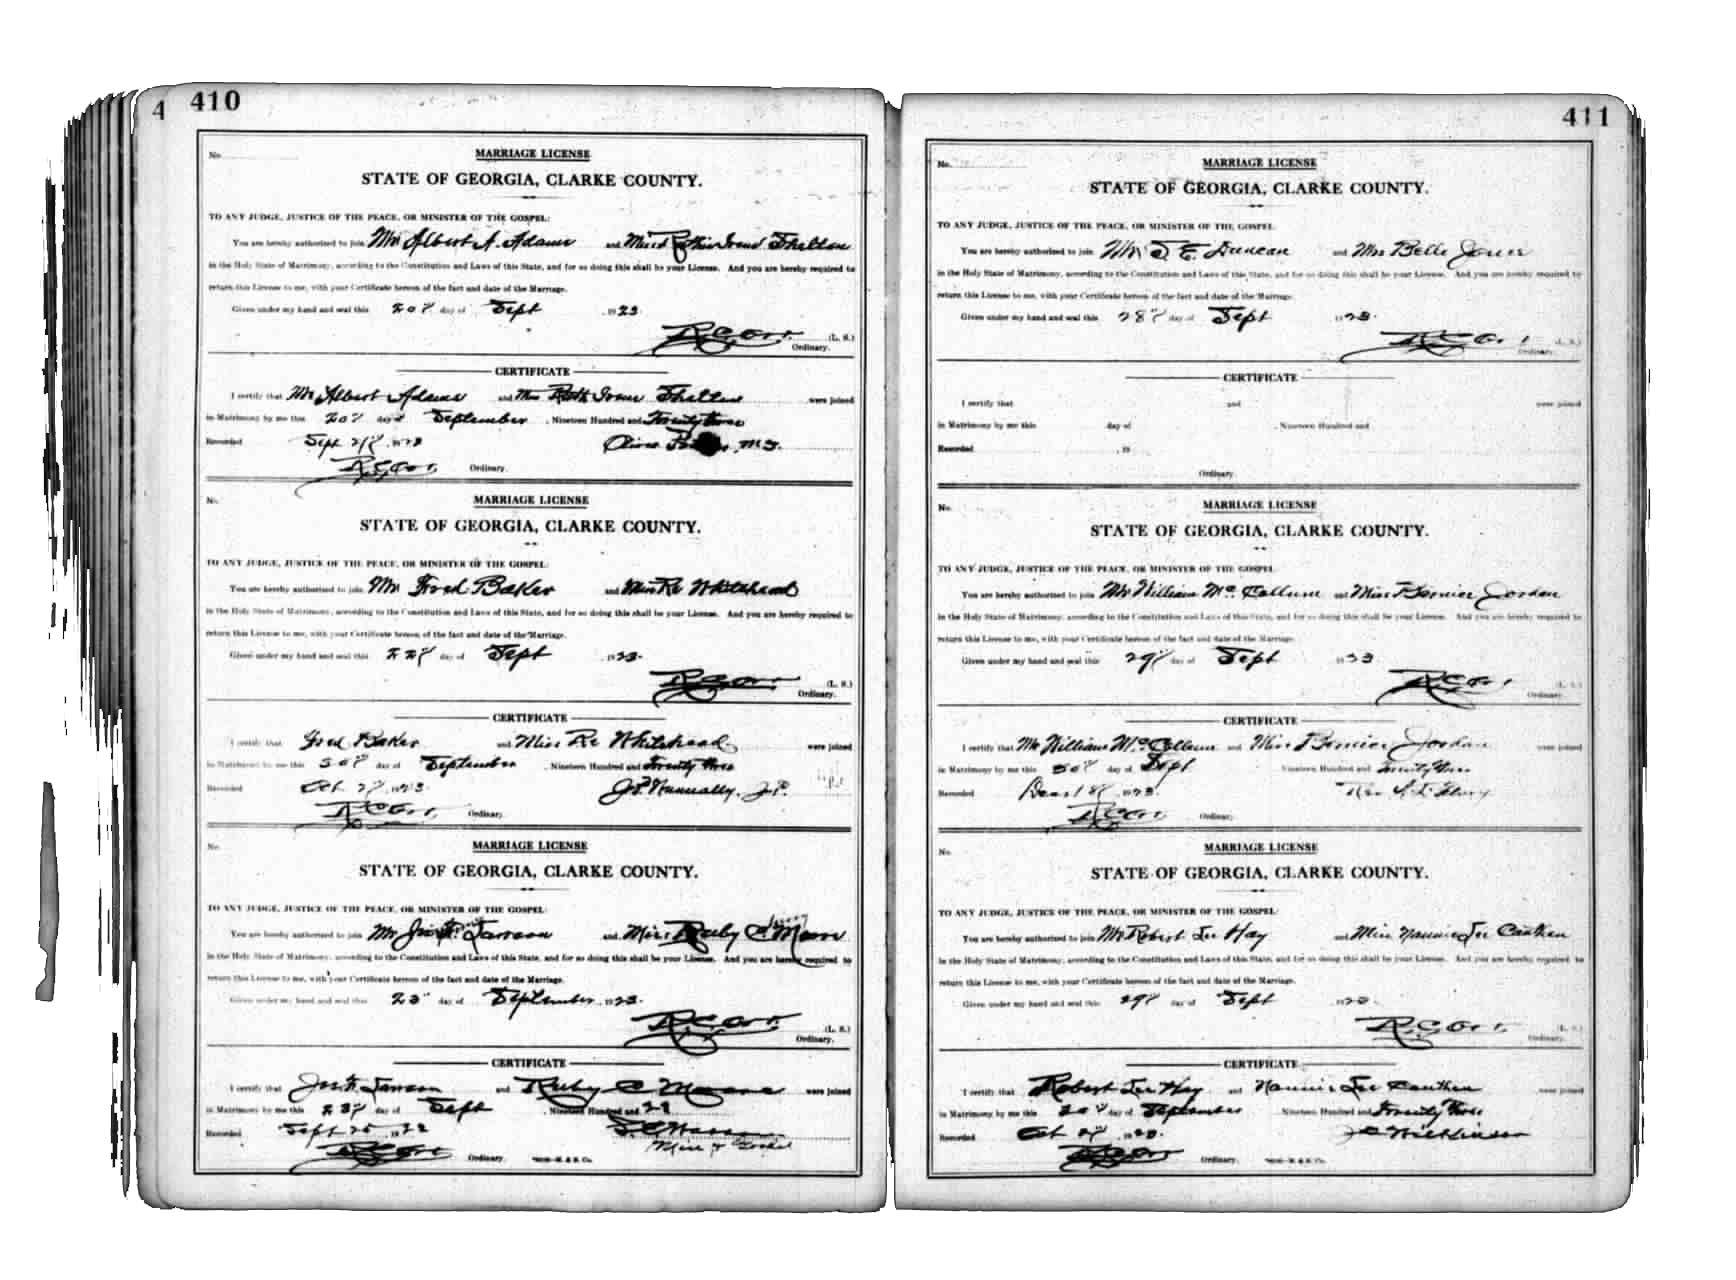 4 410
No.
MARRIAGE LICENSE
STATE OF GEORGIA, CLARKE COUNTY.
TO ANY JUDGE, JUSTICE OF THE PEACE, OR MINISTER OF THE GOSPEL:
You are hereby authorized to join Mr Albert A. Adams and Miss Irene Shelton
in the Holy State of Matrimony, according to the Constitution and Laws of this State, and for so doing this shall be your License. And you are hereby required to
return this License to me, with your Certificate hereon of the fact and date of the Marriage.
Given under my hand and seal this 20" day of Sept 1923.
R.C. Orr. (L. S.)
Ordinary.
CERTIFICATE
I certify that Mr Albert Adams and Miss Ruth Irene Shelton were joined
in Matrimony by me this 20" day of September, Nineteen Hundred and Twenty three
Recorded Sept 21" 1923 M.G.
R.C. Orr. Ordinary.
No.
MARRIAGE LICENSE
STATE OF GEORGIA, CLARKE COUNTY.
TO ANY JUDGE, JUSTICE OF THE PEACE, OR MINISTER OF THE GOSPEL:
You are hereby authorized to join Mr Fred Baker and Miss Re Whitehead
in the Holy State of Matrimony, according to the Constitution and Laws of this State, and for so doing this shall be your License. And you are hereby required to
return this License to me, with your Certificate hereon of the fact and date of the Marriage.
Given under my hand and seal this 22" day of Sept 1923.
R.C. Orr (L. S.)
Ordinary.
CERTIFICATE
I certify that Fred Baker and Miss Re Whitehead were joined
in Matrimony by me this 30" day of September, Nineteen Hundred and Twenty three
Recorded Oct 2" 1923. J.P. Nunnally, J.P.
R.C. Orr. Ordinary.
No.
MARRIAGE LICENSE
STATE OF GEORGIA, CLARKE COUNTY.
TO ANY JUDGE, JUSTICE OF THE PEACE, OR MINISTER OF THE GOSPEL:
You are hereby authorized to join Mr and Miss Ruby C.
in the Holy State of Matrimony, according to the Constitution and Laws of this State, and for so doing this shall be your License. And you are hereby required to
return this License to me, with your Certificate hereon of the fact and date of the Marriage.
Given under my hand and seal this 23" day of September 1923.
R.C. Orr. (L. S.)
Ordinary.
CERTIFICATE
I certify that and Ruby C were joined
in Matrimony by me this 23" day of Sept, Nineteen Hundred and 23
Recorded Sept 25 19
R.C. Orr Ordinary.
411
No.
MARRIAGE LICENSE
STATE OF GEORGIA, CLARKE COUNTY.
TO ANY JUDGE, JUSTICE OF THE PEACE, OR MINISTER OF THE GOSPEL:
You are hereby authorized to join Mr J. E. Duncan and Mrs Belle Jones
in the Holy State of Matrimony, according to the Constitution and Laws of this State, and for so doing this shall be your License. And you are hereby required to
return this License to me, with your Certificate hereon of the fact and date of the Marriage.
Given under my hand and seal this 28" day of Sept 1923.
R.C. Orr (L. S.)
Ordinary.
CERTIFICATE
I certify that and were joined
in Matrimony by me this day of , Nineteen Hundred and
Recorded , 19
Ordinary.
No.
MARRIAGE LICENSE
STATE OF GEORGIA, CLARKE COUNTY.
TO ANY JUDGE, JUSTICE OF THE PEACE, OR MINISTER OF THE GOSPEL:
You are hereby authorized to join Mr William McCollum and Miss Bernice Jordan
in the Holy State of Matrimony, according to the Constitution and Laws of this State, and for so doing this shall be your License. And you are hereby required to
return this License to me, with your Certificate hereon of the fact and date of the Marriage.
Given under my hand and seal this 29" day of Sept 1923
R.C. Orr (L. S.)
Ordinary.
CERTIFICATE
I certify that Mr William McCollum and Miss Bernice Jordan were joined
in Matrimony by me this 30" day of Sept Nineteen Hundred and Twenty three
Recorded 18" 1923. Rev
R.C. Orr. Ordinary.
No.
MARRIAGE LICENSE
STATE OF GEORGIA, CLARKE COUNTY.
TO ANY JUDGE, JUSTICE OF THE PEACE, OR MINISTER OF THE GOSPEL:
You are hereby authorized to join Mr Robert Lee Hay and Miss Nannie Lee Cauthen
in the Holy State of Matrimony, according to the Constitution and Laws of this State, and for so doing this shall be your License. And you are hereby required to
return this License to me, with your Certificate hereon of the fact and date of the Marriage.
Given under my hand and seal this 29" day of Sept 1923.
R.C. Orr. (L. S.)
Ordinary.
CERTIFICATE
I certify that Robert Lee Hay and Nannie Lee Cauthen were joined
in Matrimony by me this 30" day of September Nineteen Hundred and Twenty three
Recorded Oct 2" 1923. J C Wilkinson
R.C. Orr Ordinary.